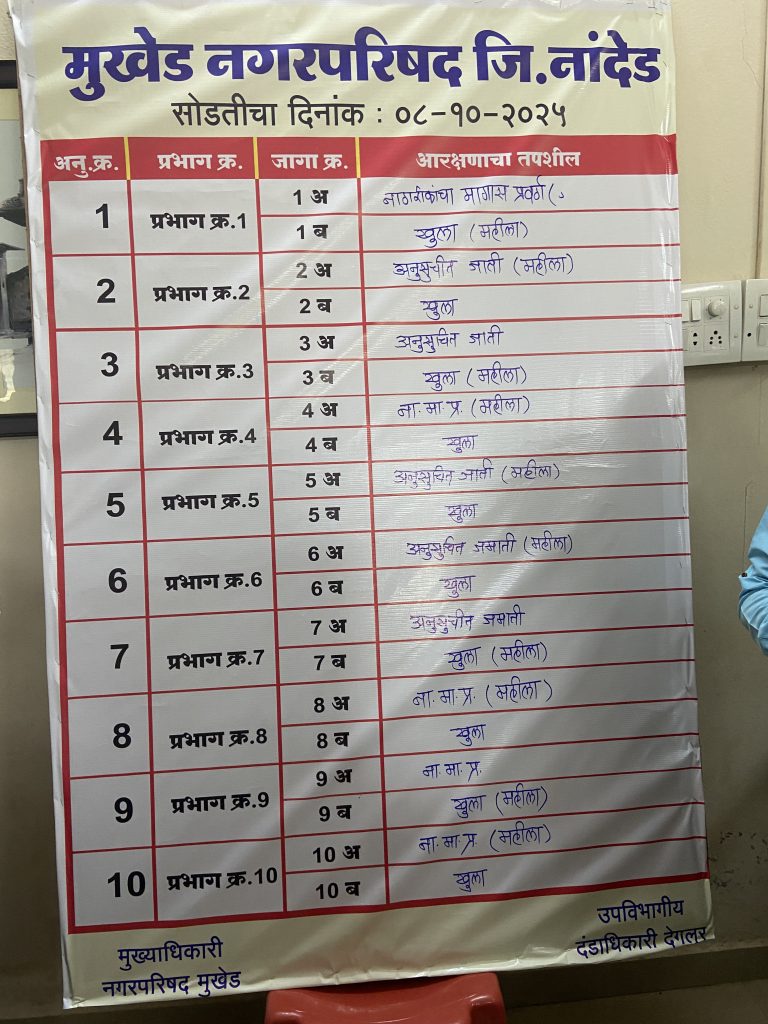 मुखेड नगरपरिषद जि.नांदेड
सोडतीचा दिनांक : ०८-१०-२०२५
अनु.क्र. प्रभाग क्र. जागा क्र. आरक्षणाचा तपशील
1 प्रभाग क्र.1 1 अ नागरीकांचा मागास प्रवर्ग (
1 ब खुला (महीला)
2 प्रभाग क्र.2 2 अ अनुसुचीत जाती (महीला)
2 ब खुला
3 प्रभाग क्र.3 3 अ अनुसुचित जाती
3 ब खुला (महीला)
4 प्रभाग क्र.4 4 अ ना.मा.प्र. (महीला)
4 ब खुला
5 प्रभाग क्र.5 5 अ अनुसुचित जाती (महीला)
5 ब खुला
6 प्रभाग क्र.6 6 अ अनुसुचित जमाती (महीला)
6 ब खुला
7 प्रभाग क्र.7 7 अ अनुसुचीत जमाती
7 ब खुला (महीला)
8 प्रभाग क्र.8 8 अ ना.मा.प्र. (महीला)
8 ब खुला
9 प्रभाग क्र.9 9 अ ना.मा.प्र.
9 ब खुला (महीला)
10 प्रभाग क्र.10 10 अ ना.मा.प्र (महीला)
10 ब खुला
मुख्याधिकारी
नगरपरिषद मुखेड
उपविभागीय
दंडाधिकारी देगलूर